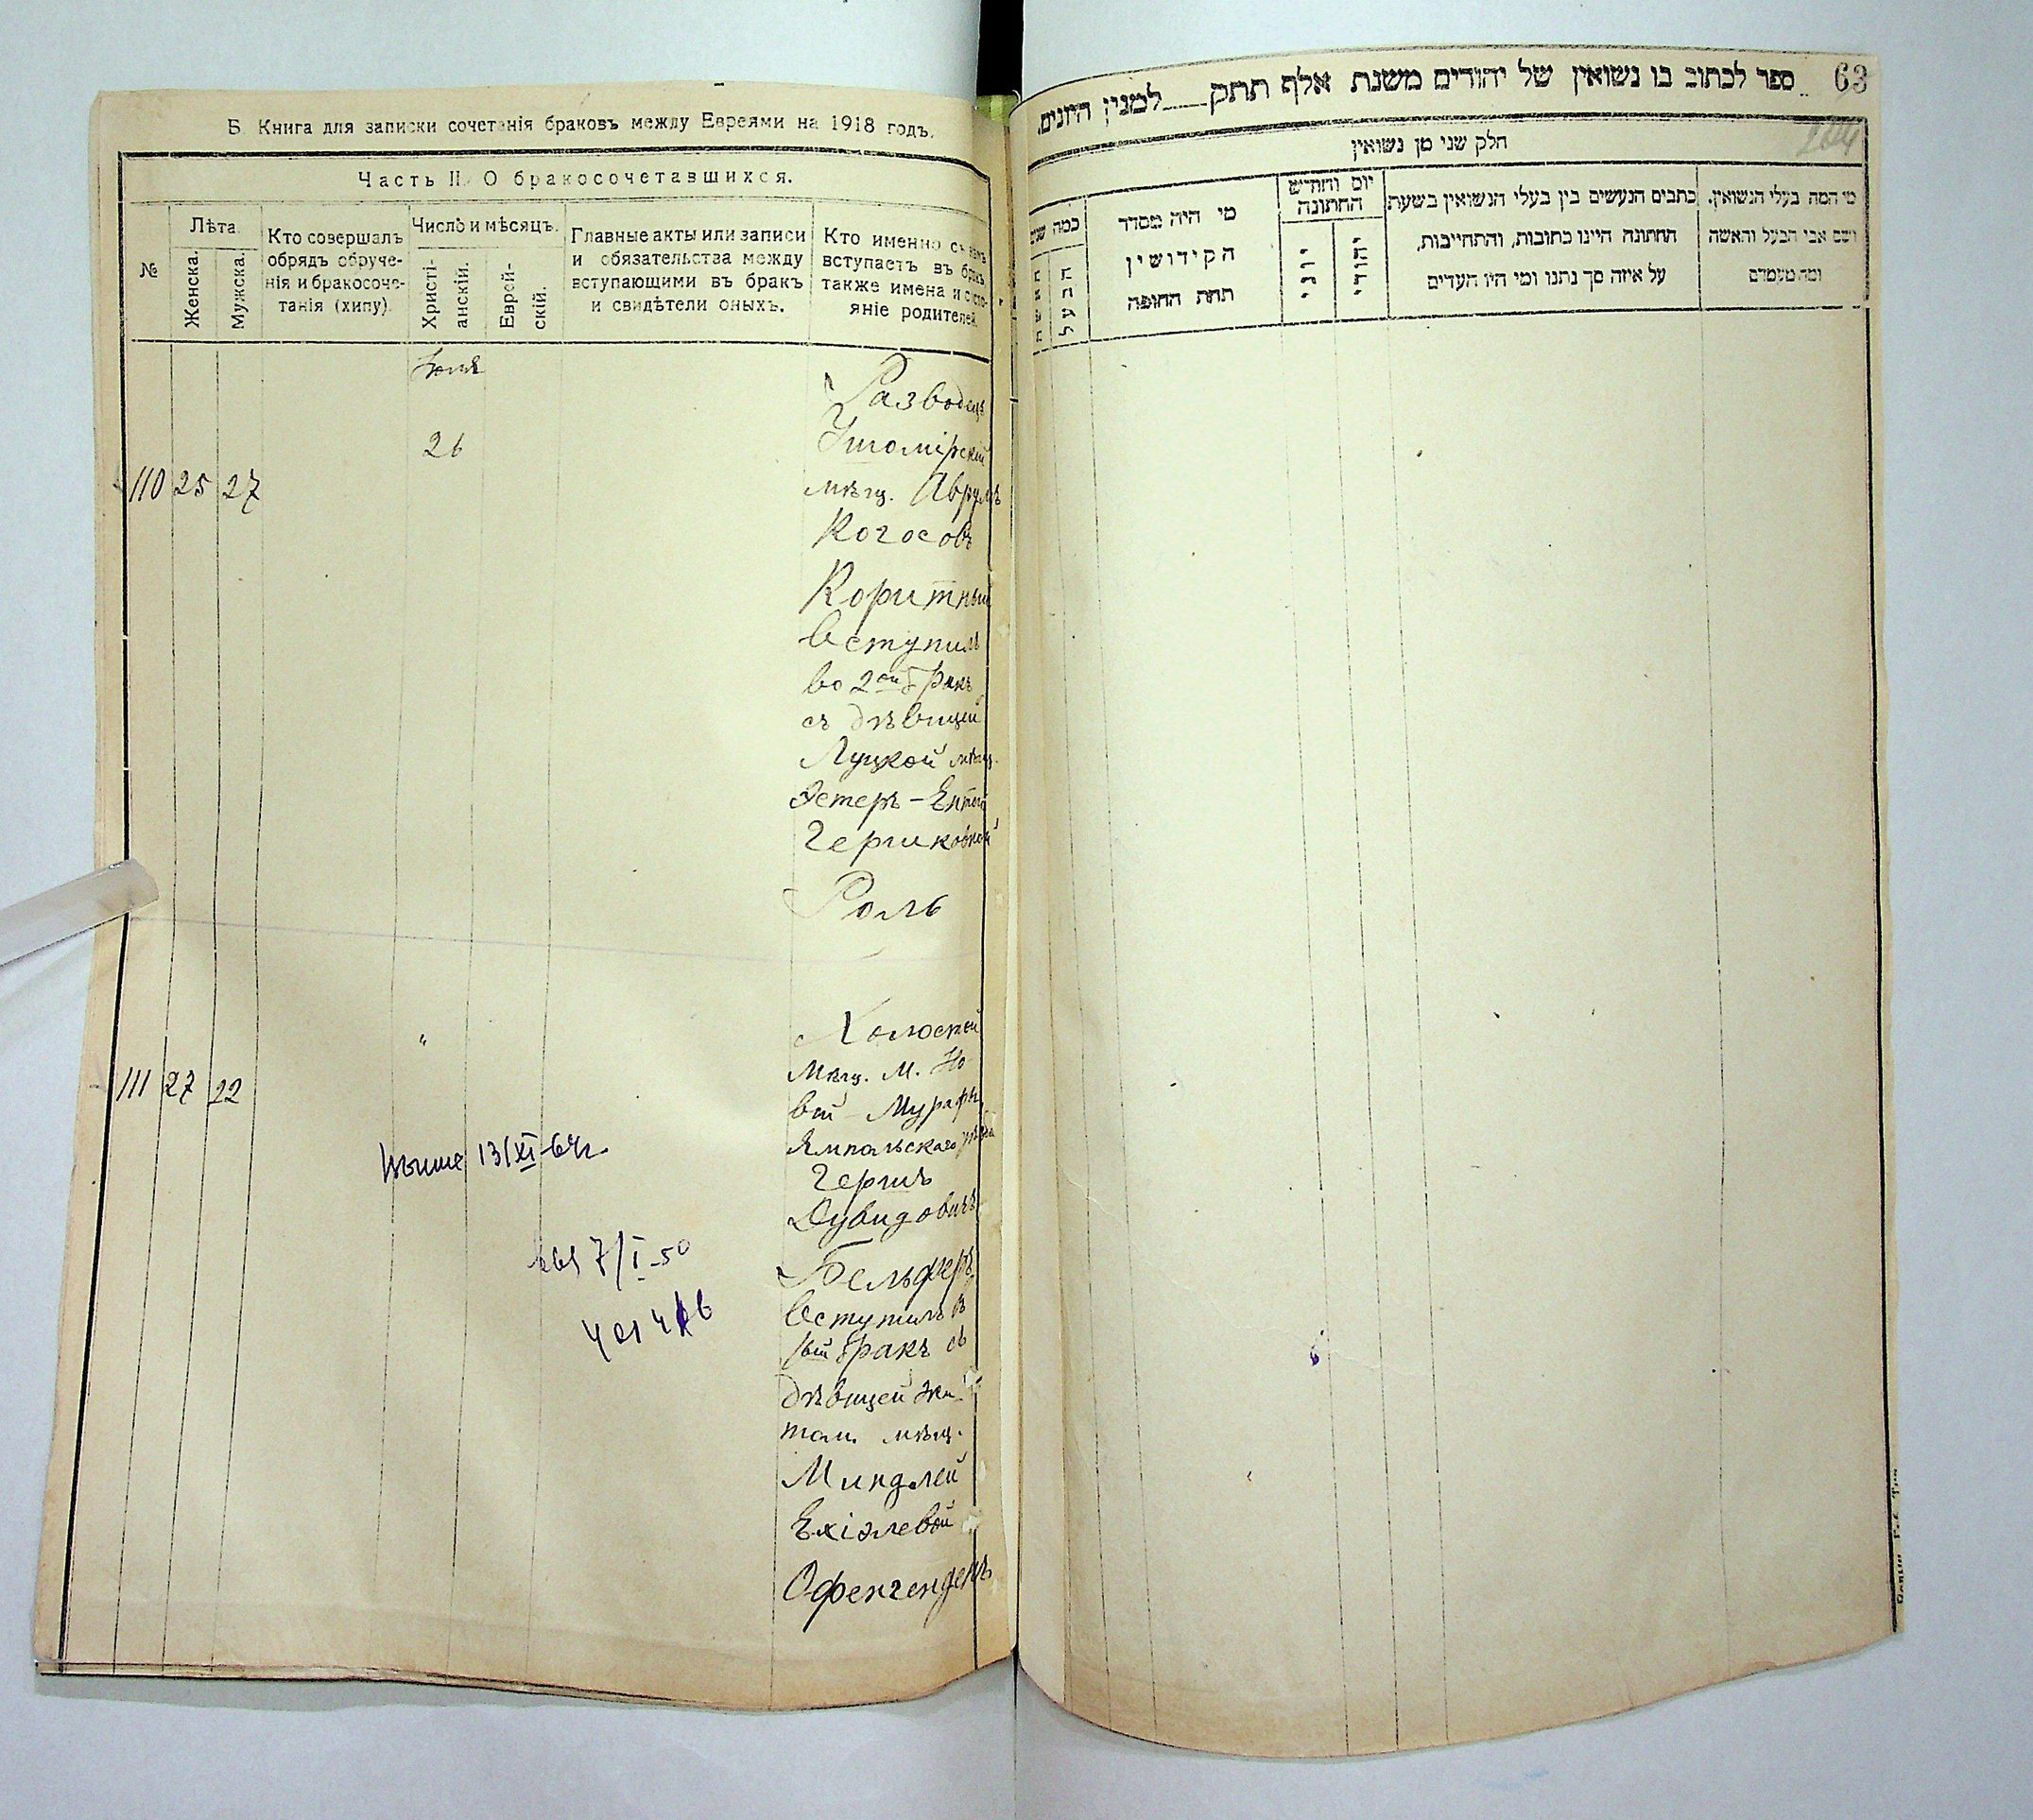 Б. Книга для записки сочетанія браковъ между Евреями на 1918 годъ.
Часть II. О бракосочетавшихся.
№
Лѣта.
Женска.
Мужска.
Кто совершалъ
обрядъ обруче-
нія и бракосоче-
танія (хипу).
Число и мѣсяцъ.
Христі-
анскій.
Еврей-
скій.
Главные акты или записи
и обязательства между
вступающими въ бракъ
и свидѣтели оныхъ.
Кто именно съ кемъ
вступаетъ въ бракъ
также имена и состо-
яніе родителей.
Разводецъ
26
Ушомірскій
110 25 27
мѣщ. Аврумъ
Когосовъ
Коритный
вступилъ
во 2ой бракъ
съ дѣвицей
Луцкой мѣщ.
Эстеръ-Ентой
Гершковной
Роль
Холостой
"
Мѣщ. м. Но
111 27 22
вой-Мурафы,
Ямпольскаго уѣзда
13/XI-64г.
Гершъ
Дувидовичъ
7/I-50
Бельферъ
вступилъ въ
1ый бракъ съ
дѣвицей Жи-
том. мѣщ.
Миндлей
Ехіэлевой
Офенгенденъ
63
ספר לכתוב בו נשואין של יהודים משנת אלף תתק למנין היונים.
חלק שני מן נשואין
מי המה בעלי הנשואין.
ושם אבי הבעל והאשה
ומה מעמדם
כתבים הנעשים בין בעלי הנשואין בשעת
החתונה היינו כתובות, והתחייבות,
על איזה סך נתנו ומי היו העדים
יום וחודש
החתונה
יהודי
יוני
מי היה מסדר
הקידושין
תחת החופה
כמה שנים
הבעל
האשה